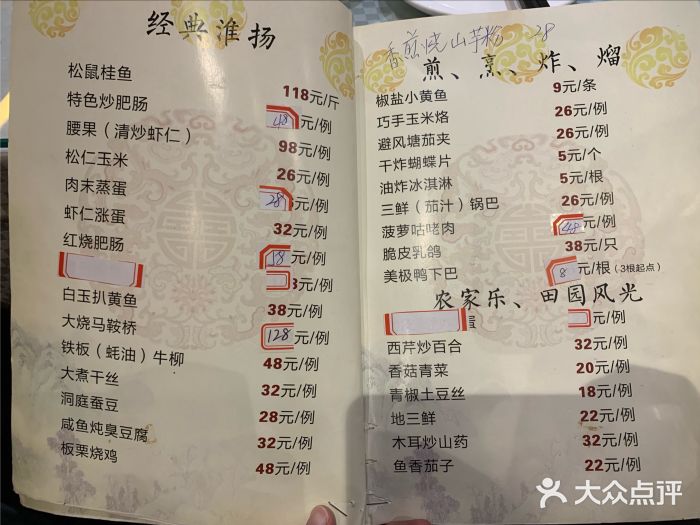 经典淮扬
松鼠桂鱼 118元/斤
特色炒肥肠 48元/例
腰果（清炒虾仁） 98元/例
松仁玉米 26元/例
肉末蒸蛋 28元/例
虾仁涨蛋 32元/例
红烧肥肠 元/例
元/例
白玉扒黄鱼 38元/例
大烧马鞍桥 128元/例
铁板（蚝油）牛柳 48元/例
大煮干丝 32元/例
洞庭蚕豆 28元/例
咸鱼炖臭豆腐 32元/例
板栗烧鸡 48元/例
香煎烧山芋粉 28
煎、烹、炸、熘
椒盐小黄鱼 9元/条
巧手玉米烙 26元/例
避风塘茄夹 26元/例
干炸蝴蝶片 5元/个
油炸冰淇淋 5元/根
三鲜（茄汁）锅巴 26元/例
菠萝咕咾肉 48元/例
脆皮乳鸽 38元/只
美极鸭下巴 8元/根（3根起点）
农家乐、田园风光
蛋 元/例
西芹炒百合 32元/例
香菇青菜 20元/例
青椒土豆丝 18元/例
地三鲜 22元/例
木耳炒山药 32元/例
鱼香茄子 22元/例
大众点评